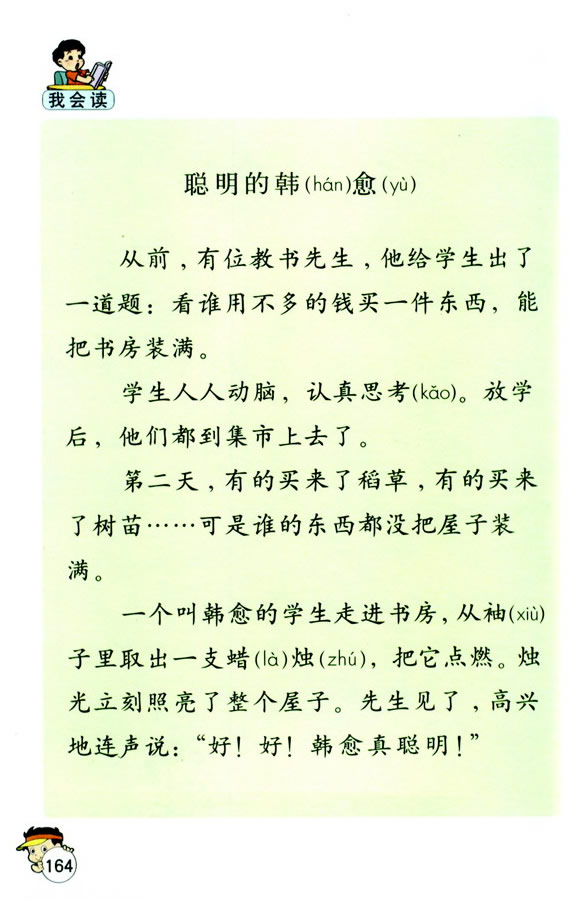 我会读
聪明的韩(hán)愈(yù)
从前，有位教书先生，他给学生出了
一道题：看谁用不多的钱买一件东西，能
把书房装满。
学生人人动脑，认真思考(kǎo)。放学
后，他们都到集市上去了。
第二天，有的买来了稻草，有的买来
了树苗……可是谁的东西都没把屋子装
满。
一个叫韩愈的学生走进书房，从袖(xiù)
子里取出一支蜡(là)烛(zhú)，把它点燃。烛
光立刻照亮了整个屋子。先生见了，高兴
地连声说：“好！好！韩愈真聪明！”
164